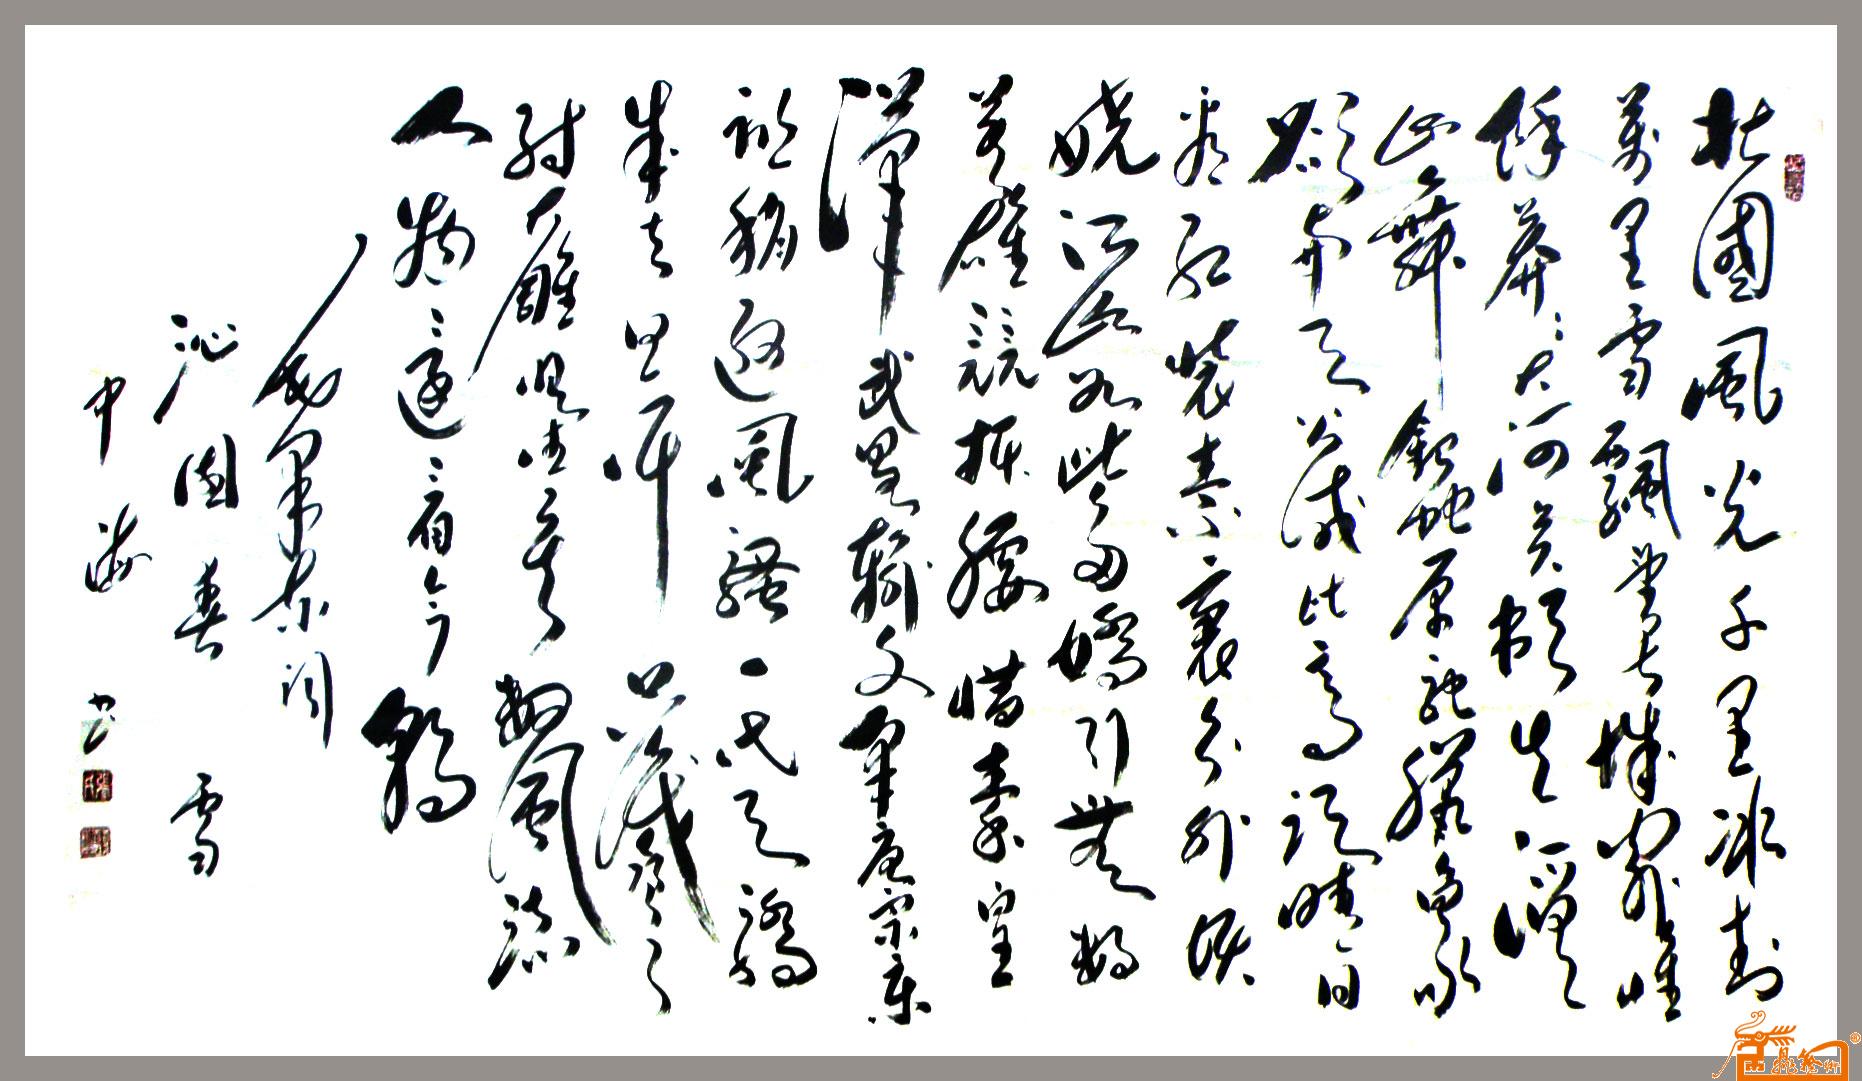 北國風光千里冰封
萬里雪飄望長城內外惟
餘莽々大河上下頓失滔々
山舞銀蛇原馳臘象
欲與天公試比高須晴日
看紅裝素裹分外妖
嬈江山如此多嬌引無數
英雄競折腰惜秦皇
漢武略輸文采唐宗宋
祖稍遜風騷一代天驕
成吉思汗只識彎弓
射大雕俱往矣數風流
人物還看今朝
毛澤東詞
沁園春 雪
中海 書